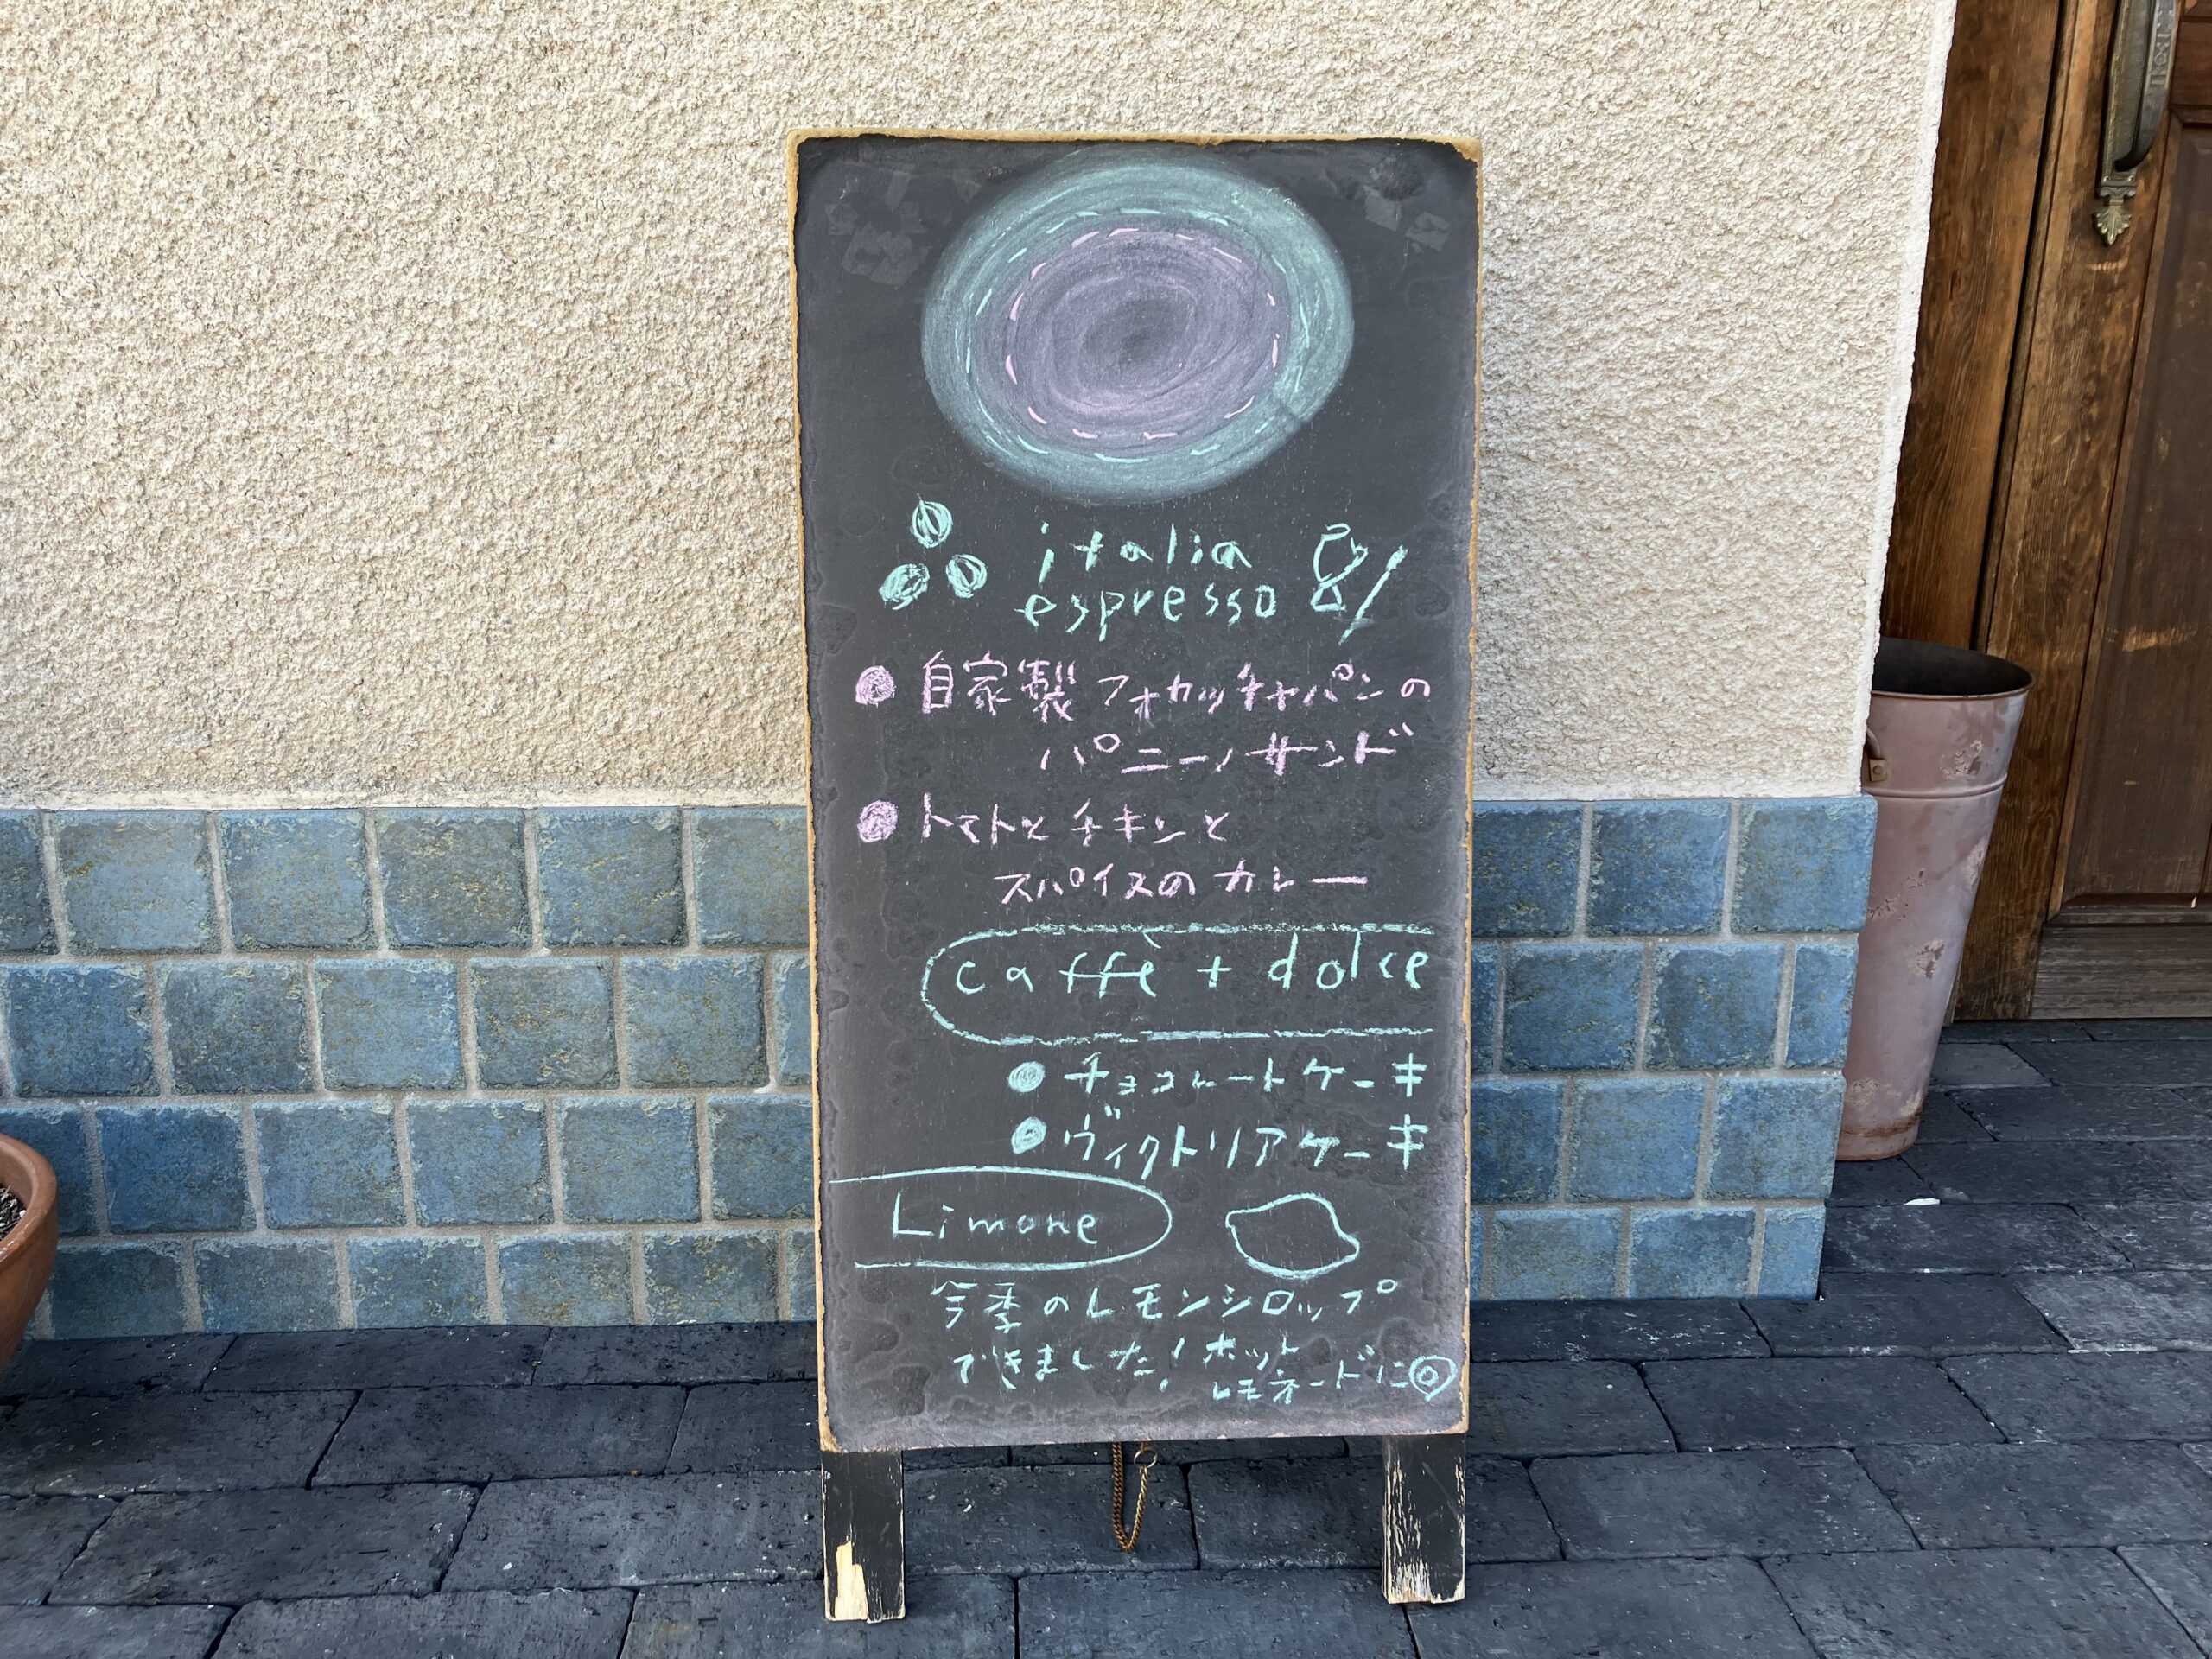 italia
espresso
自家製フォカッチャパンの
パニーノサンド
トマトとチキンと
スパイスのカレー
caffè + dolce
チョコレートケーキ
ヴィクトリアケーキ
Limone
今季のレモンシロップ
できました!ホット
レモネードに◎